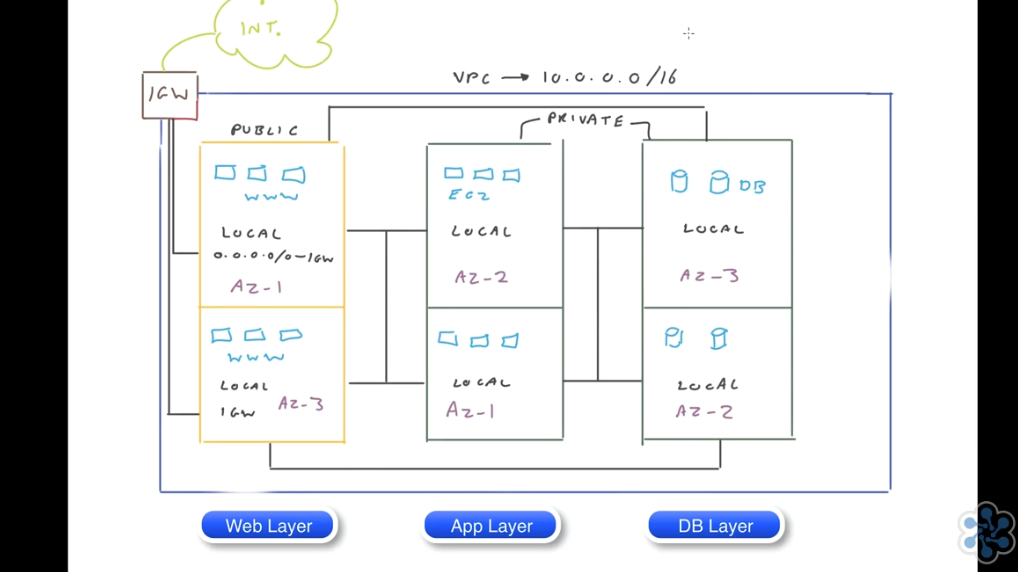 INT.
IGW
VPC → 10.0.0.0/16
PUBLIC
PRIVATE
WWW
LOCAL
0.0.0.0/0-IGW
AZ-1
EC2
LOCAL
AZ-2
DB
LOCAL
AZ-3
WWW
LOCAL
IGW
AZ-3
LOCAL
AZ-1
LOCAL
AZ-2
Web Layer
App Layer
DB Layer